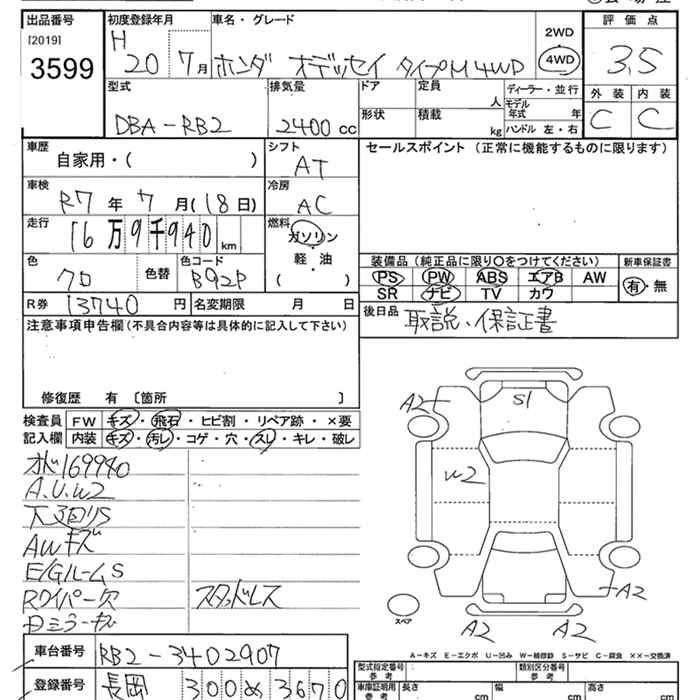 出品番号 初度登録年月 車名・グレード 評価点
[2019] H 2WD
3599 20 7月 ホンダ オデッセイ タイプM 4WD 4WD 3.5
型式 排気量 ドア 定員 人 ディーラー・並行 外装 内装
DBA-RB2 2400cc 形状 積載 kg モデル年式 年 ハンドル 左・右 C C
車歴 自家用・( ) シフト AT セールスポイント (正常に機能するものに限ります)
車検 R7年7月(18日) 冷房 AC
走行 16万9千940km 燃料 ガソリン・軽油 ( )
色 クロ 色替 色コード B92P 装備品 (純正品に限り○をつけてください) 新車保証書
PS PW ABS エアB AW 有・無
R券 13740円 名変期限 月 日 SR ナビ TV カワ
注意事項申告欄(不具合内容等は具体的に記入して下さい) 後日品 取説、保証書
修復歴 有 〔箇所 〕
検査員記入欄 FW キズ・飛石・ヒビ割・リペア跡・×要
内装 キズ・汚レ・コゲ・穴・スレ・キレ・破レ
A2 S1
169940
A.U.W2 W2
下廻りS
AWキズ
E/GルームS
Rワイパー欠 スタッドレス A2
スペア A2 A2
A－キズ E－エクボ U－凹み W－補修跡 S－サビ C－腐食 ××－交換済
車台番号 RB2-3402907 型式指定番号 参考 類別区分番号 参考
登録番号 長岡 300め3670 車庫証明用 参考 長さ cm 幅 cm 高さ cm